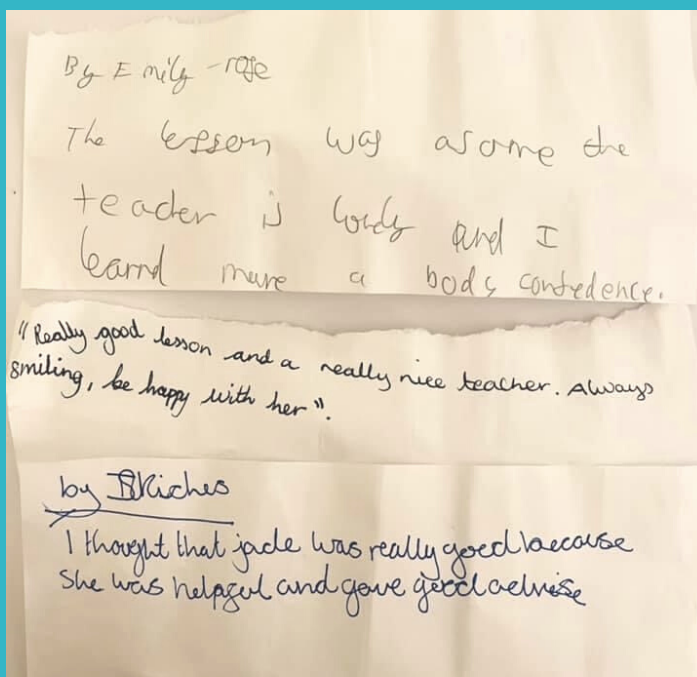 By Emily-rose
The lesson was asome the
teacher is lovely and I
learnd more a body confedence.
"Really good lesson and a really nice teacher. Always
smiling, be happy with her".
by Riches
I thought that jade was really good because
She was helpful and gave good advise